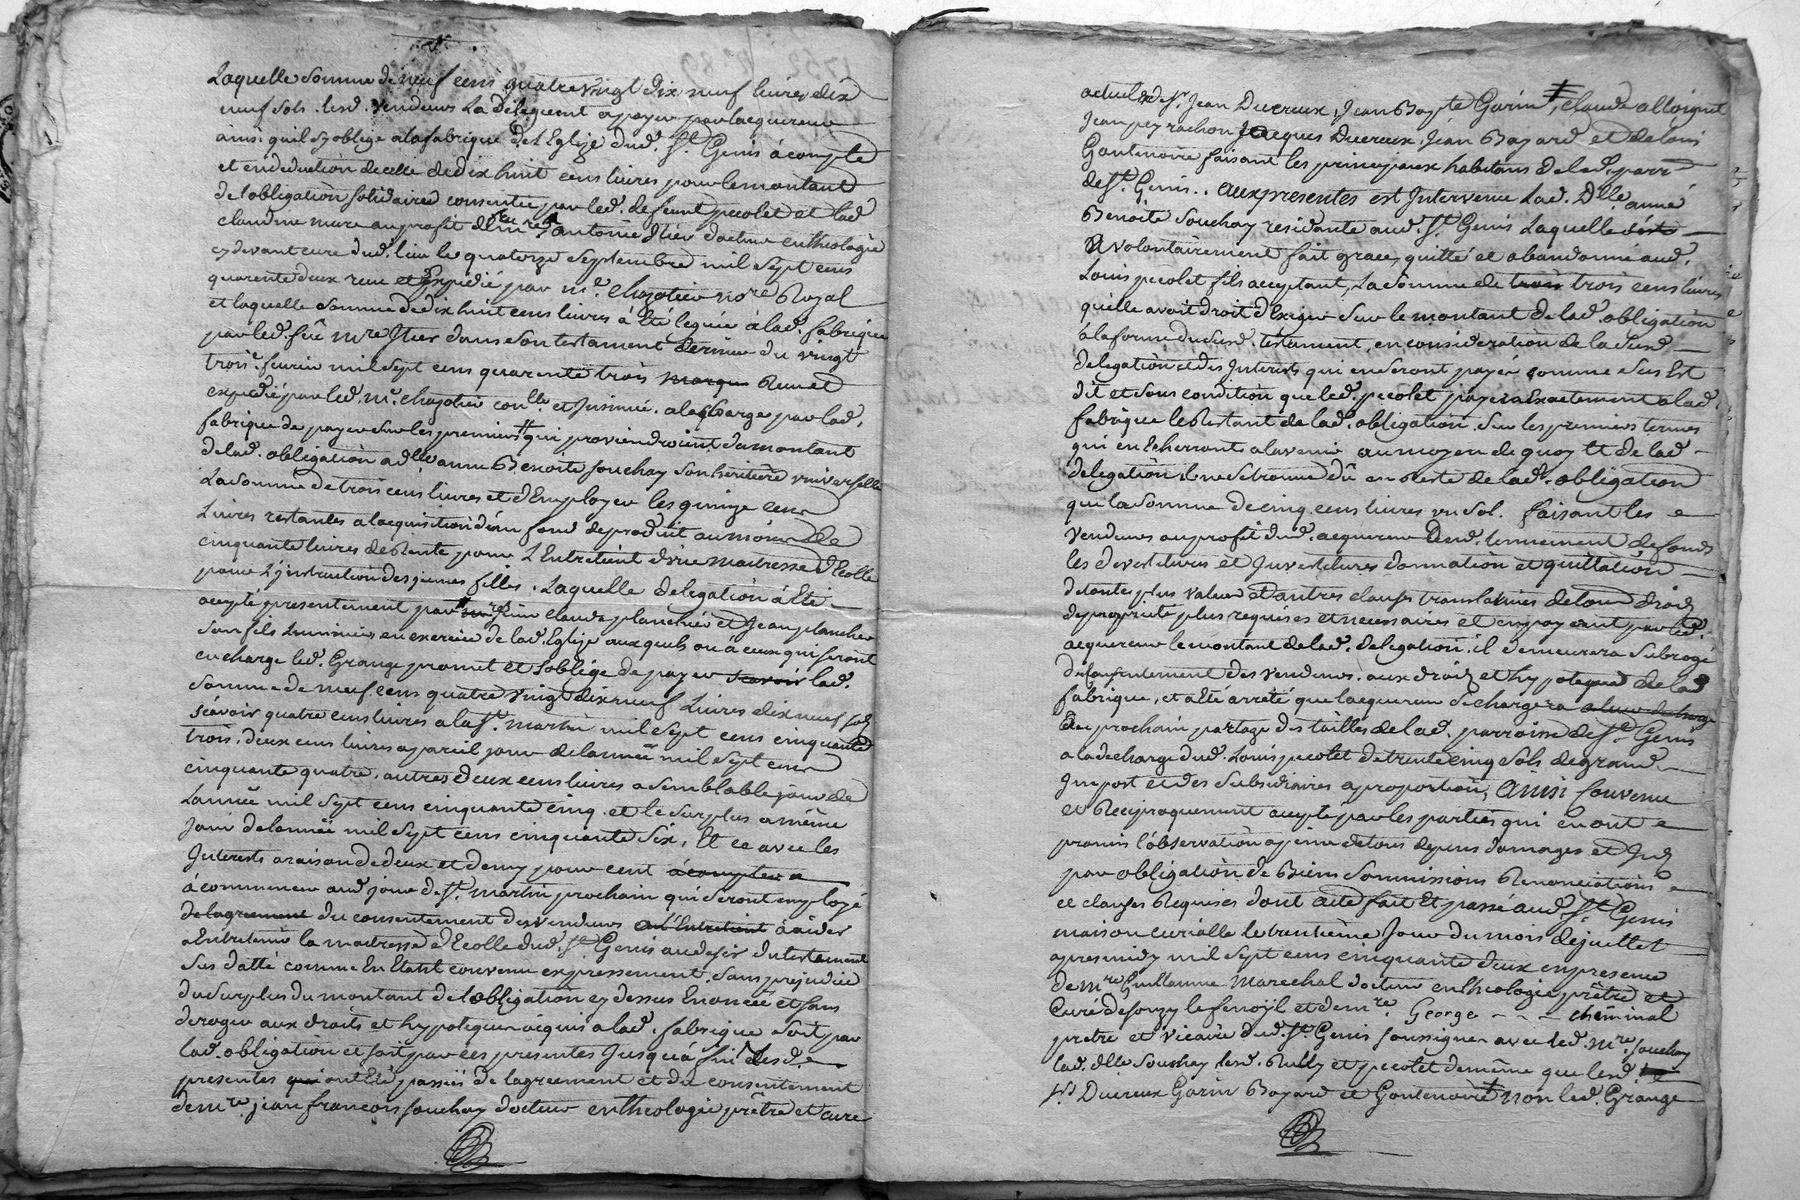 Laquelle somme de neuf cens quatre vingt dix neuf livres dix
neuf sols lesd. vendeurs La deleguent a payer par lacquereur
ainsi quil s'y oblige a la fabrique de l'Eglize dud. St. Genis à compte
et en deduction de celle de dix huit cens livres pour le montant
de l'obligation solidaire consentie par led. defeunt pecolet et lad.
claudine mure au profit de mre antoine Itier docteur en theologie
cy devant cure dud. lieu le quatorze septembre mil sept cens
quarente deux receu et Expedié par me. Chazotier nore Royal
et laquelle somme de dix huit cens livres à Eté leguée à lad. fabrique
par led. feu mre Itier dans son testament dernier du vingt
trois fevrier mil sept cens quarente trois Receu et
expedié par led. me. chazotier conlle. et Insinué. a la charge par lad.
fabrique de payer sur les premiers qui proviendroient du montant
de lad. obligation a dlle anne Benoite souchay son heritiere universelle
La somme de trois cens livres et d'Employer les quinze cens
Livres restantes a lacquisition d'un fond de produit au moins de
cinquante livres de Rente pour L'Entretient d'une maitresse d'Ecolle
pour L'jnstruction des jeunes filles. Laquelle delegation à Eté
accepté presentement par sieur claude planchier et Jean planchier
son fils Luminiers en exercice de lad. Eglize auxquels ou a ceux qui seront
en charge led. Grange promet et s'oblige de payer scavoir lad.
somme de neuf cens quatre vingt dix neuf Livres dix neuf sols
scavoir quatre cens livres a la St. martin mil sept cens cinquante
trois, deux cens livres a pareil jour de lannéé mil sept cens
cinquante quatre, autres deux cens livres a semblable jour de
Lannéé mil sept cens cinquante cinq et le surplus a même
Jour de lannéé mil sept cens cinquante six, Et ce avec les
Interests a raison de deux et demy pour cent à compter
à commencer aud. jour de St. martin prochain qui seront employé
de lagrement du consentement des vendeurs a l'Entretient à aider
a Entretenir la maitresse d'Ecolle dud. St. Genis au desir du testament
sus datté comme En Etant convenu expressement sans prejudice
du surplus du montant de l'obligation cy dessus Enoncéé et sans
deroger aux droits et hypoteques acquis a lad. fabrique soit par
lad. obligation et soit par ces presentes Jusqu'à fin desd.
presentes qui ont Eté passéés de lagreement et du consentement
de mre. jean francois souchay docteur en theologie prêtre et cure
actuel de Sr. Jean Ducreux, Jean Bapte Gorin, claude alloignet
Jean peyrachon Jacques Ducreux Jean Bayard et de Louis
Gontenoire faisant les principaux habitans de lad. parr.
de St. Genis.. aux presentes est Intervenue Lad. Dlle anne
Benoite Souchay residante aud. St. Genis Laquelle
a volontairement fait grace, quitté et abandonné aud.
Louis pecolet fils acceptant, La somme de trois trois cens livres
qu'elle avoit droit d'Exiger sur le montant de lad. obligation
à la forme du susd. testament, en consideration de la susd.
delegation et des Interests qui en seront payés comme sus Est
dit et sous condition que led. pecolet payera Exactement a lad.
fabrique le Restant de lad. obligation sur les premiers termes
qui en Echerront a lavenir au moyen de quoy et de lad.
delegation, il ne se trouve dû en Reste de lad. obligation
que la somme de cinq cens livres un sol. faisant les
vendeurs au profit dud. acquereur dud. tennement de fonds
les devestitures et Investitures donnation et quittation
de toutes plus values et autres clauses translatives de tous droits
de proprieté plus requises et necessaires et en payant par led.
acquereur le montant de lad. delegation, il demeurera subrogé
du consentement des vendeurs aux droits et hypoteques de lad.
fabrique, et a Eté arreté que lacquereur se chargera a leur decharge
au prochain partage des tailles de lad. parroisse de St. Genis
a la decharge dud. Louis pecolet de trente cinq sols de grand
Impost et des subsidiaires a proportion, Ainsi Convenu
et Reciproquement accepté par les parties qui en ont
promis l'observation a peine de tous depens domages et Intz
par obligation de Biens Soummissions Renonciations
et clauses Requises dont acte fait Et passé aud. St. Genis
maison curialle le trentieme Jour du mois de juillet
apres midy mil sept cens cinquante deux en presence
de mre Guillaume Marechal docteur en theologie prêtre et
Curé de souzy le fenoÿl et de mre. George - - - cheminal
pretre et vicaire dud. St. Genis soussignes avec led. mre. souchay
lad. dlle Souchay lesd. Rully et pecolet de même que lesd.
srs Ducreux Gorin Bayard et Gontenoire non led. Grange